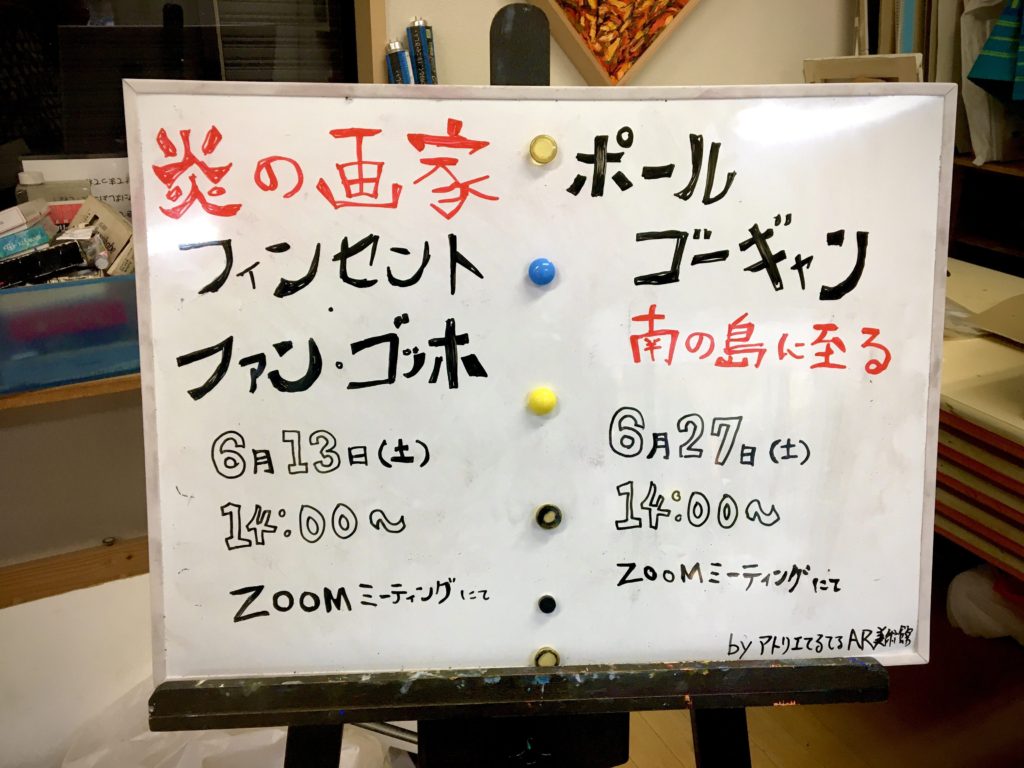 炎の画家
フィンセント
ファン・ゴッホ
6月13日(土)
14:00～
ZOOMミーティングにて
ポール
ゴーギャン
南の島に至る
6月27日(土)
14:00～
ZOOMミーティングにて
by アトリエてるてるAR美術館